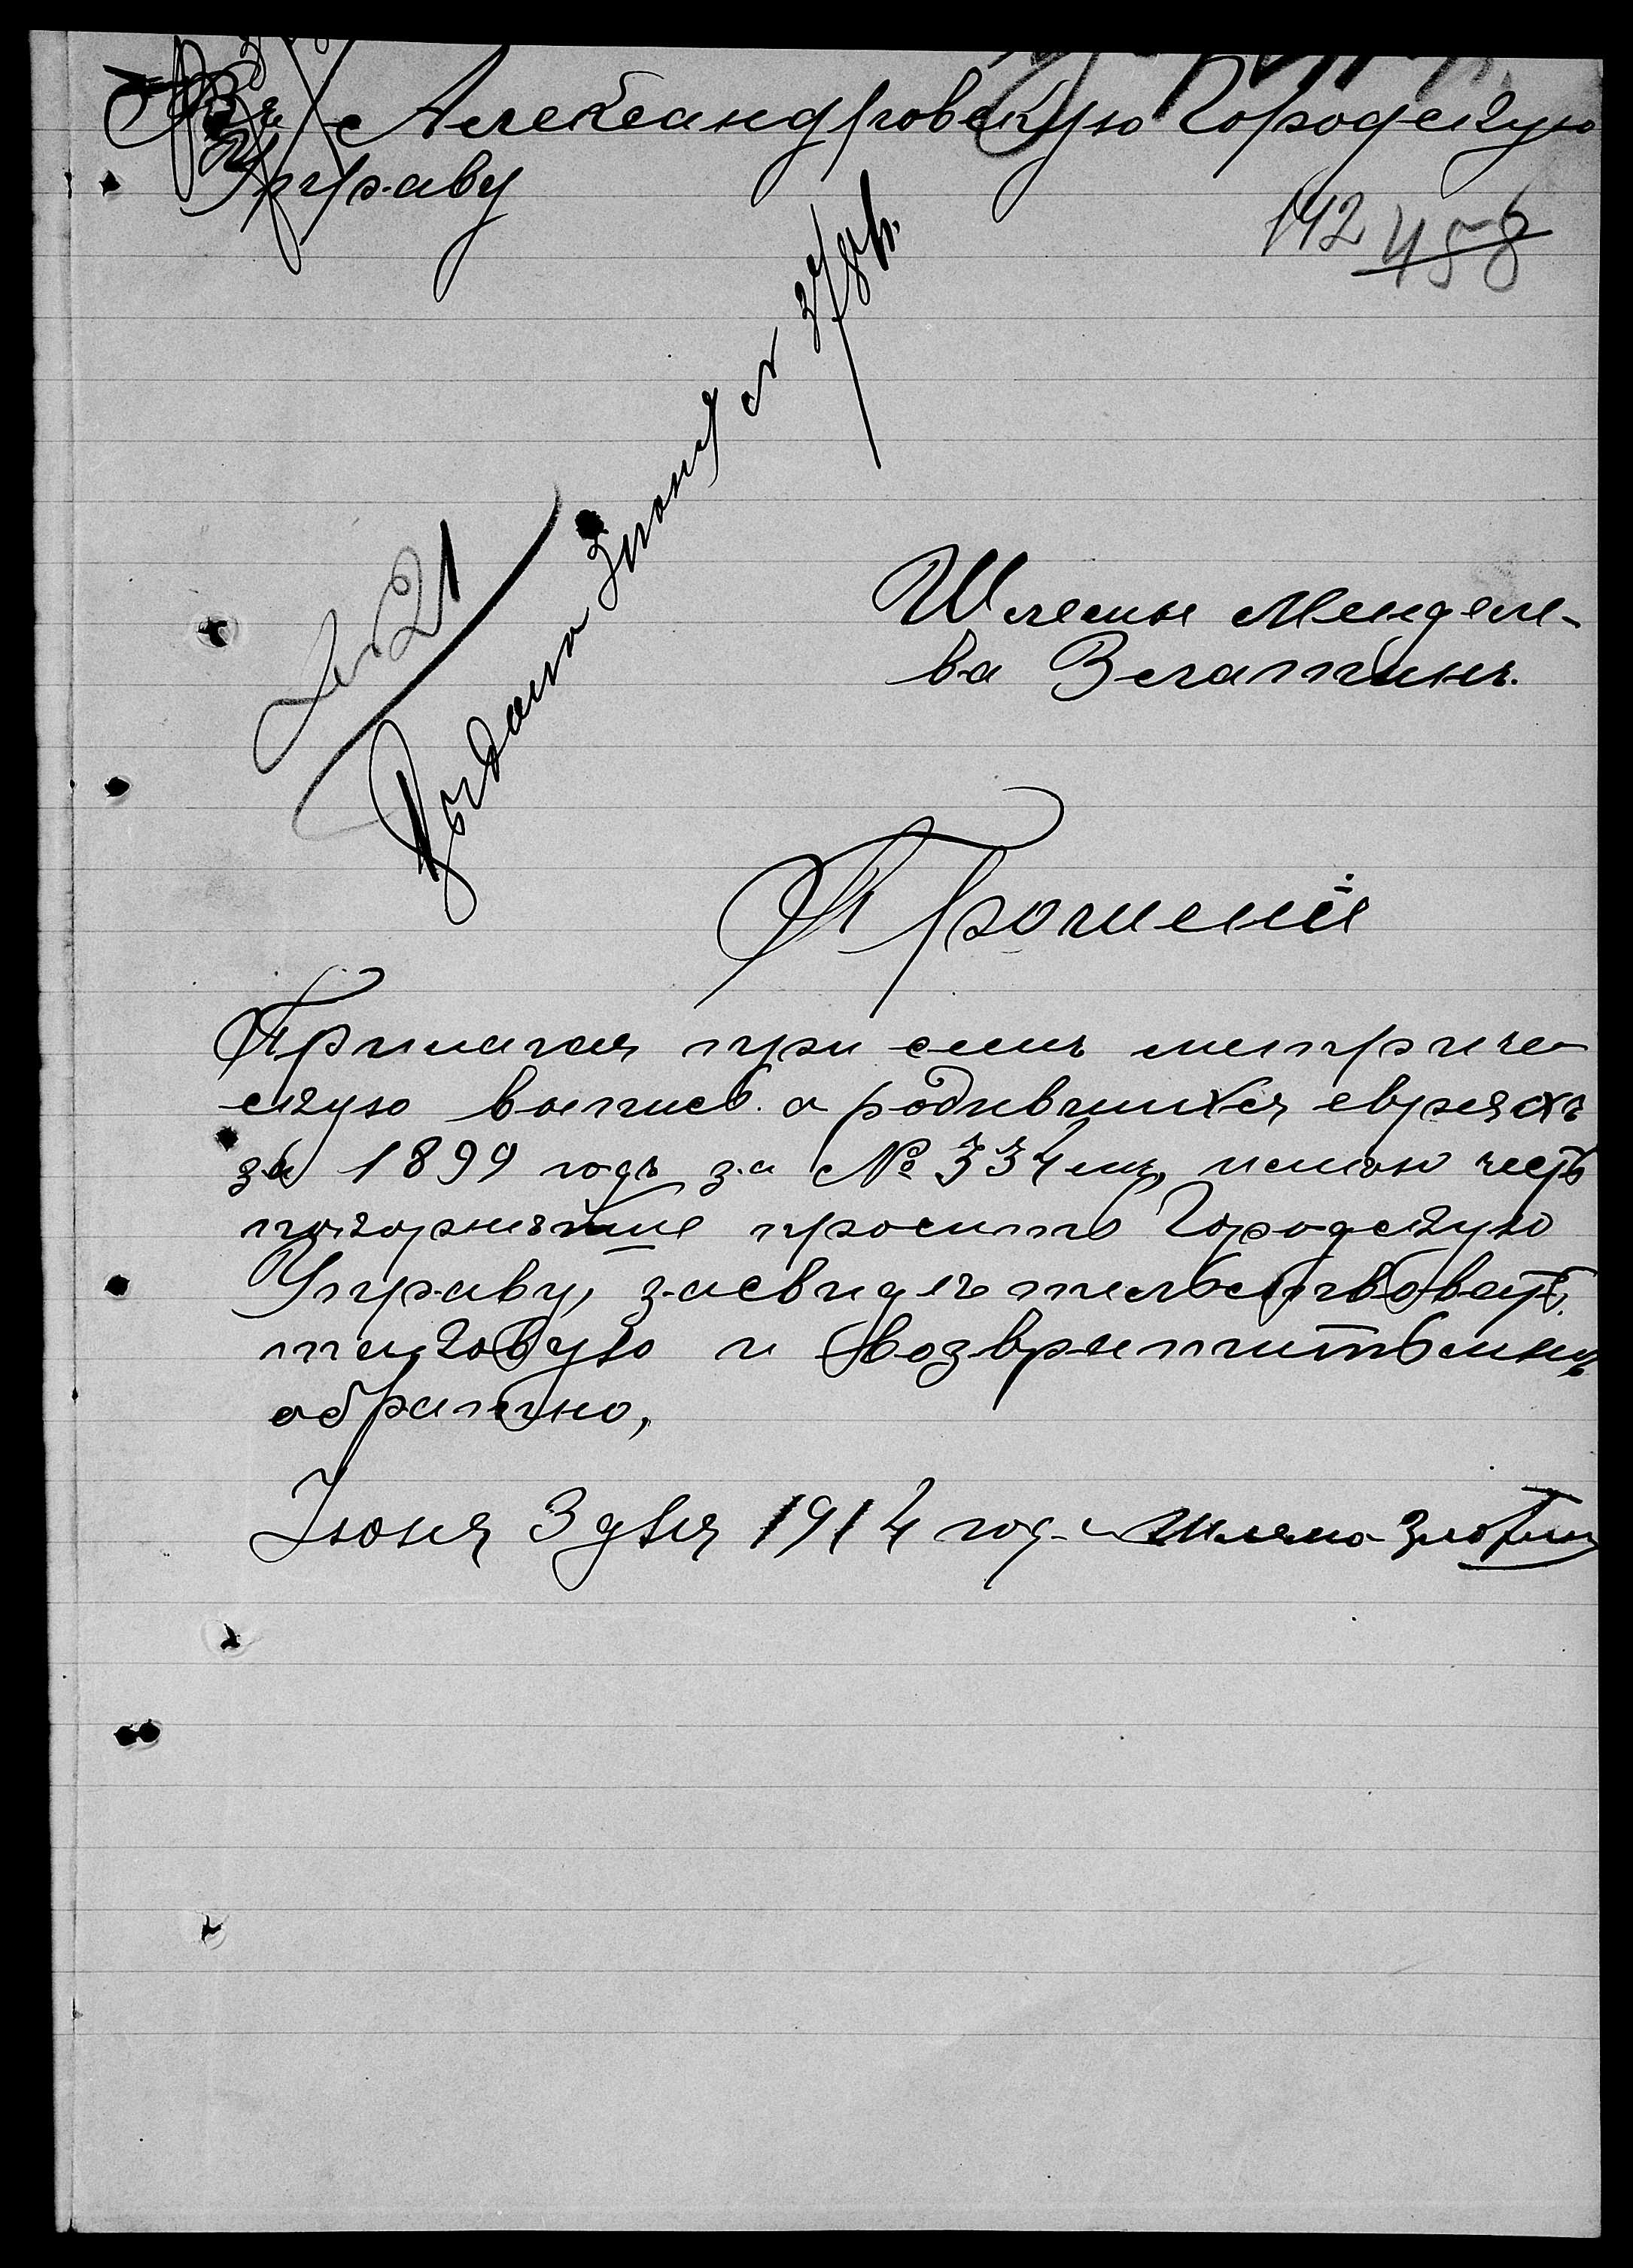 Въ Александровскую Городскую
Управу
142 458
№ 21
Выдана 3 июня
Шлемы Менделе-
ва Златкинъ.
Прошеніе
Прилагая при семъ метриче-
скую выпись о родившихся евреяхъ
за 1899 годъ за № 334 мъ, имѣю честь
покорнѣйше просить Городскую
Управу, засвидѣтельствовать
таковую и возвратить мнѣ
обратно,
Іюня 3 дня 1914 год. Шлема